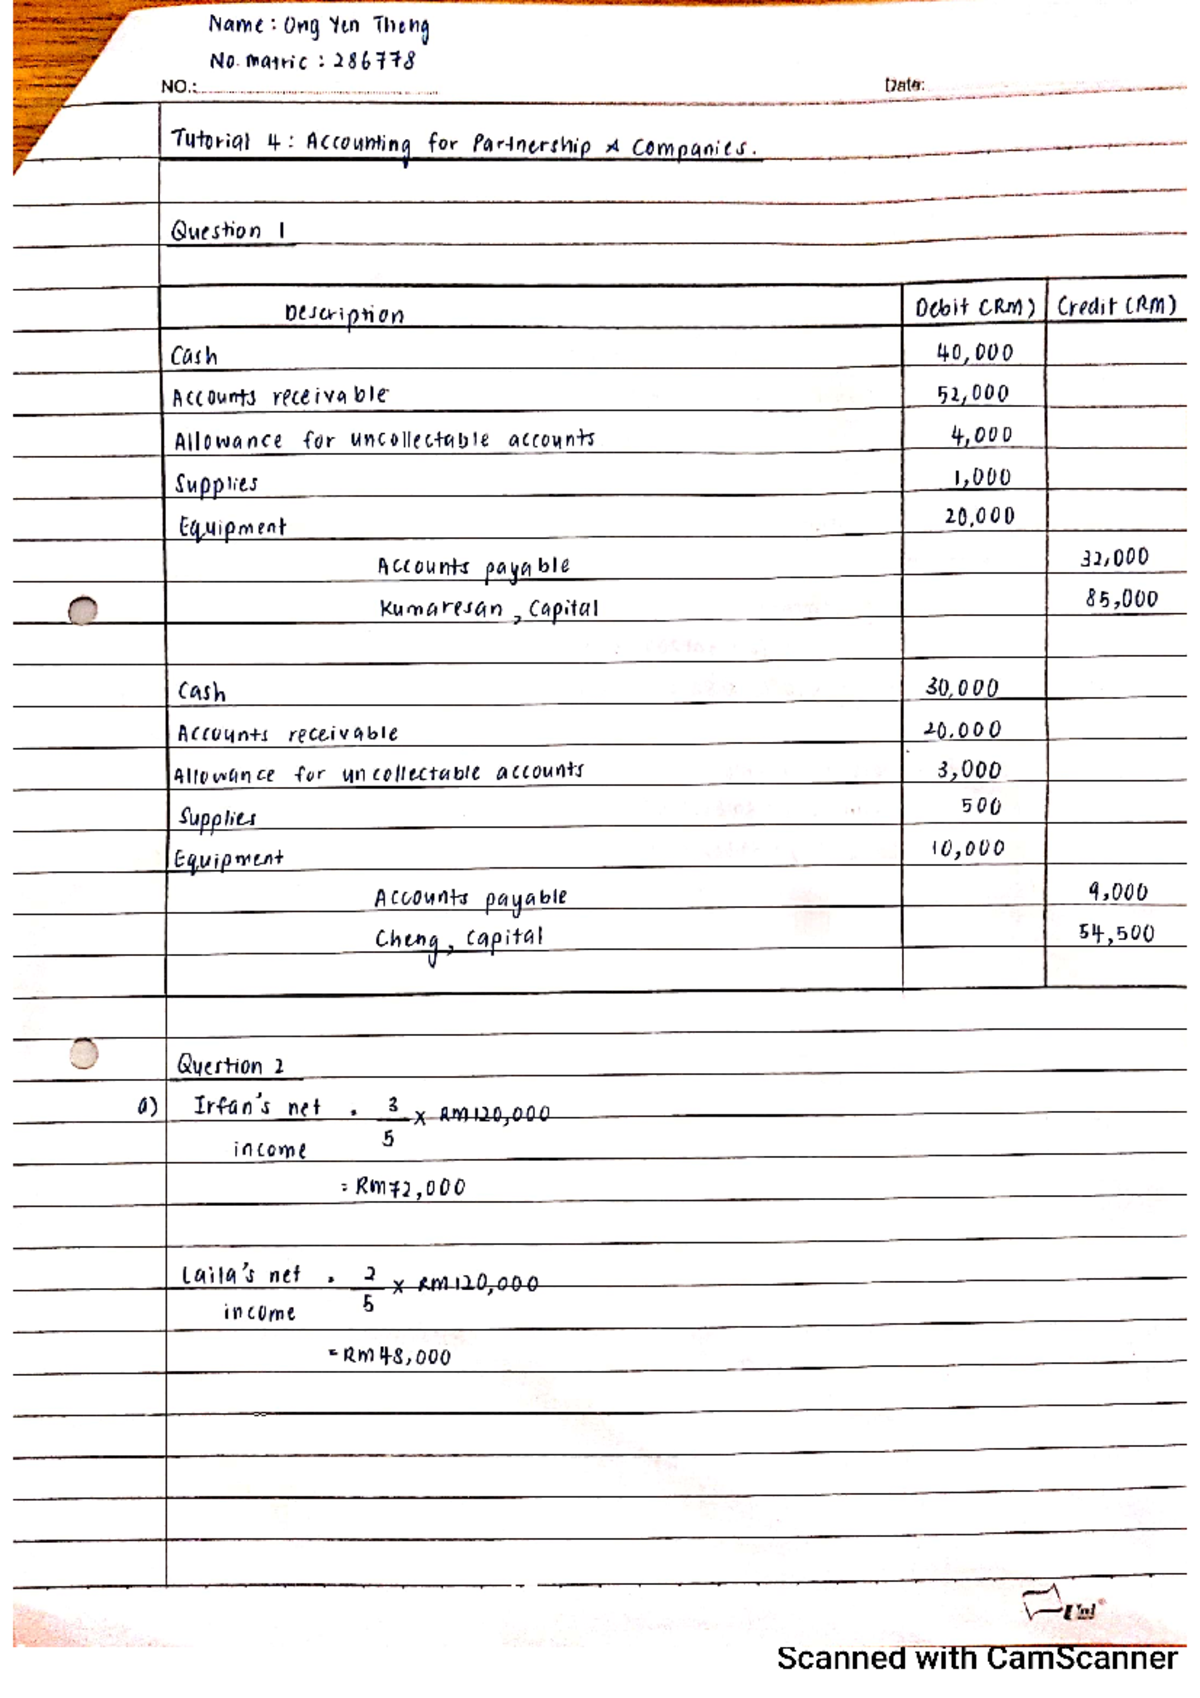 Name : Ong Yen Theng
No. matric : 286778
NO.:
Date:
Tutorial 4 : Accounting for Partnership & Companies.
Question 1
Description Debit (RM) Credit (RM)
Cash 40,000
Accounts receivable 52,000
Allowance for uncollectable accounts 4,000
Supplies 1,000
Equipment 20,000
Accounts payable 32,000
Kumaresan, Capital 85,000
Cash 30,000
Accounts receivable 20,000
Allowance for uncollectable accounts 3,000
Supplies 500
Equipment 10,000
Accounts payable 9,000
Cheng, Capital 54,500
Question 2
a) Irfan's net income = 3/5 × RM120,000
= RM72,000
Laila's net income = 2/5 × RM120,000
= RM48,000
Uni
Scanned with CamScanner